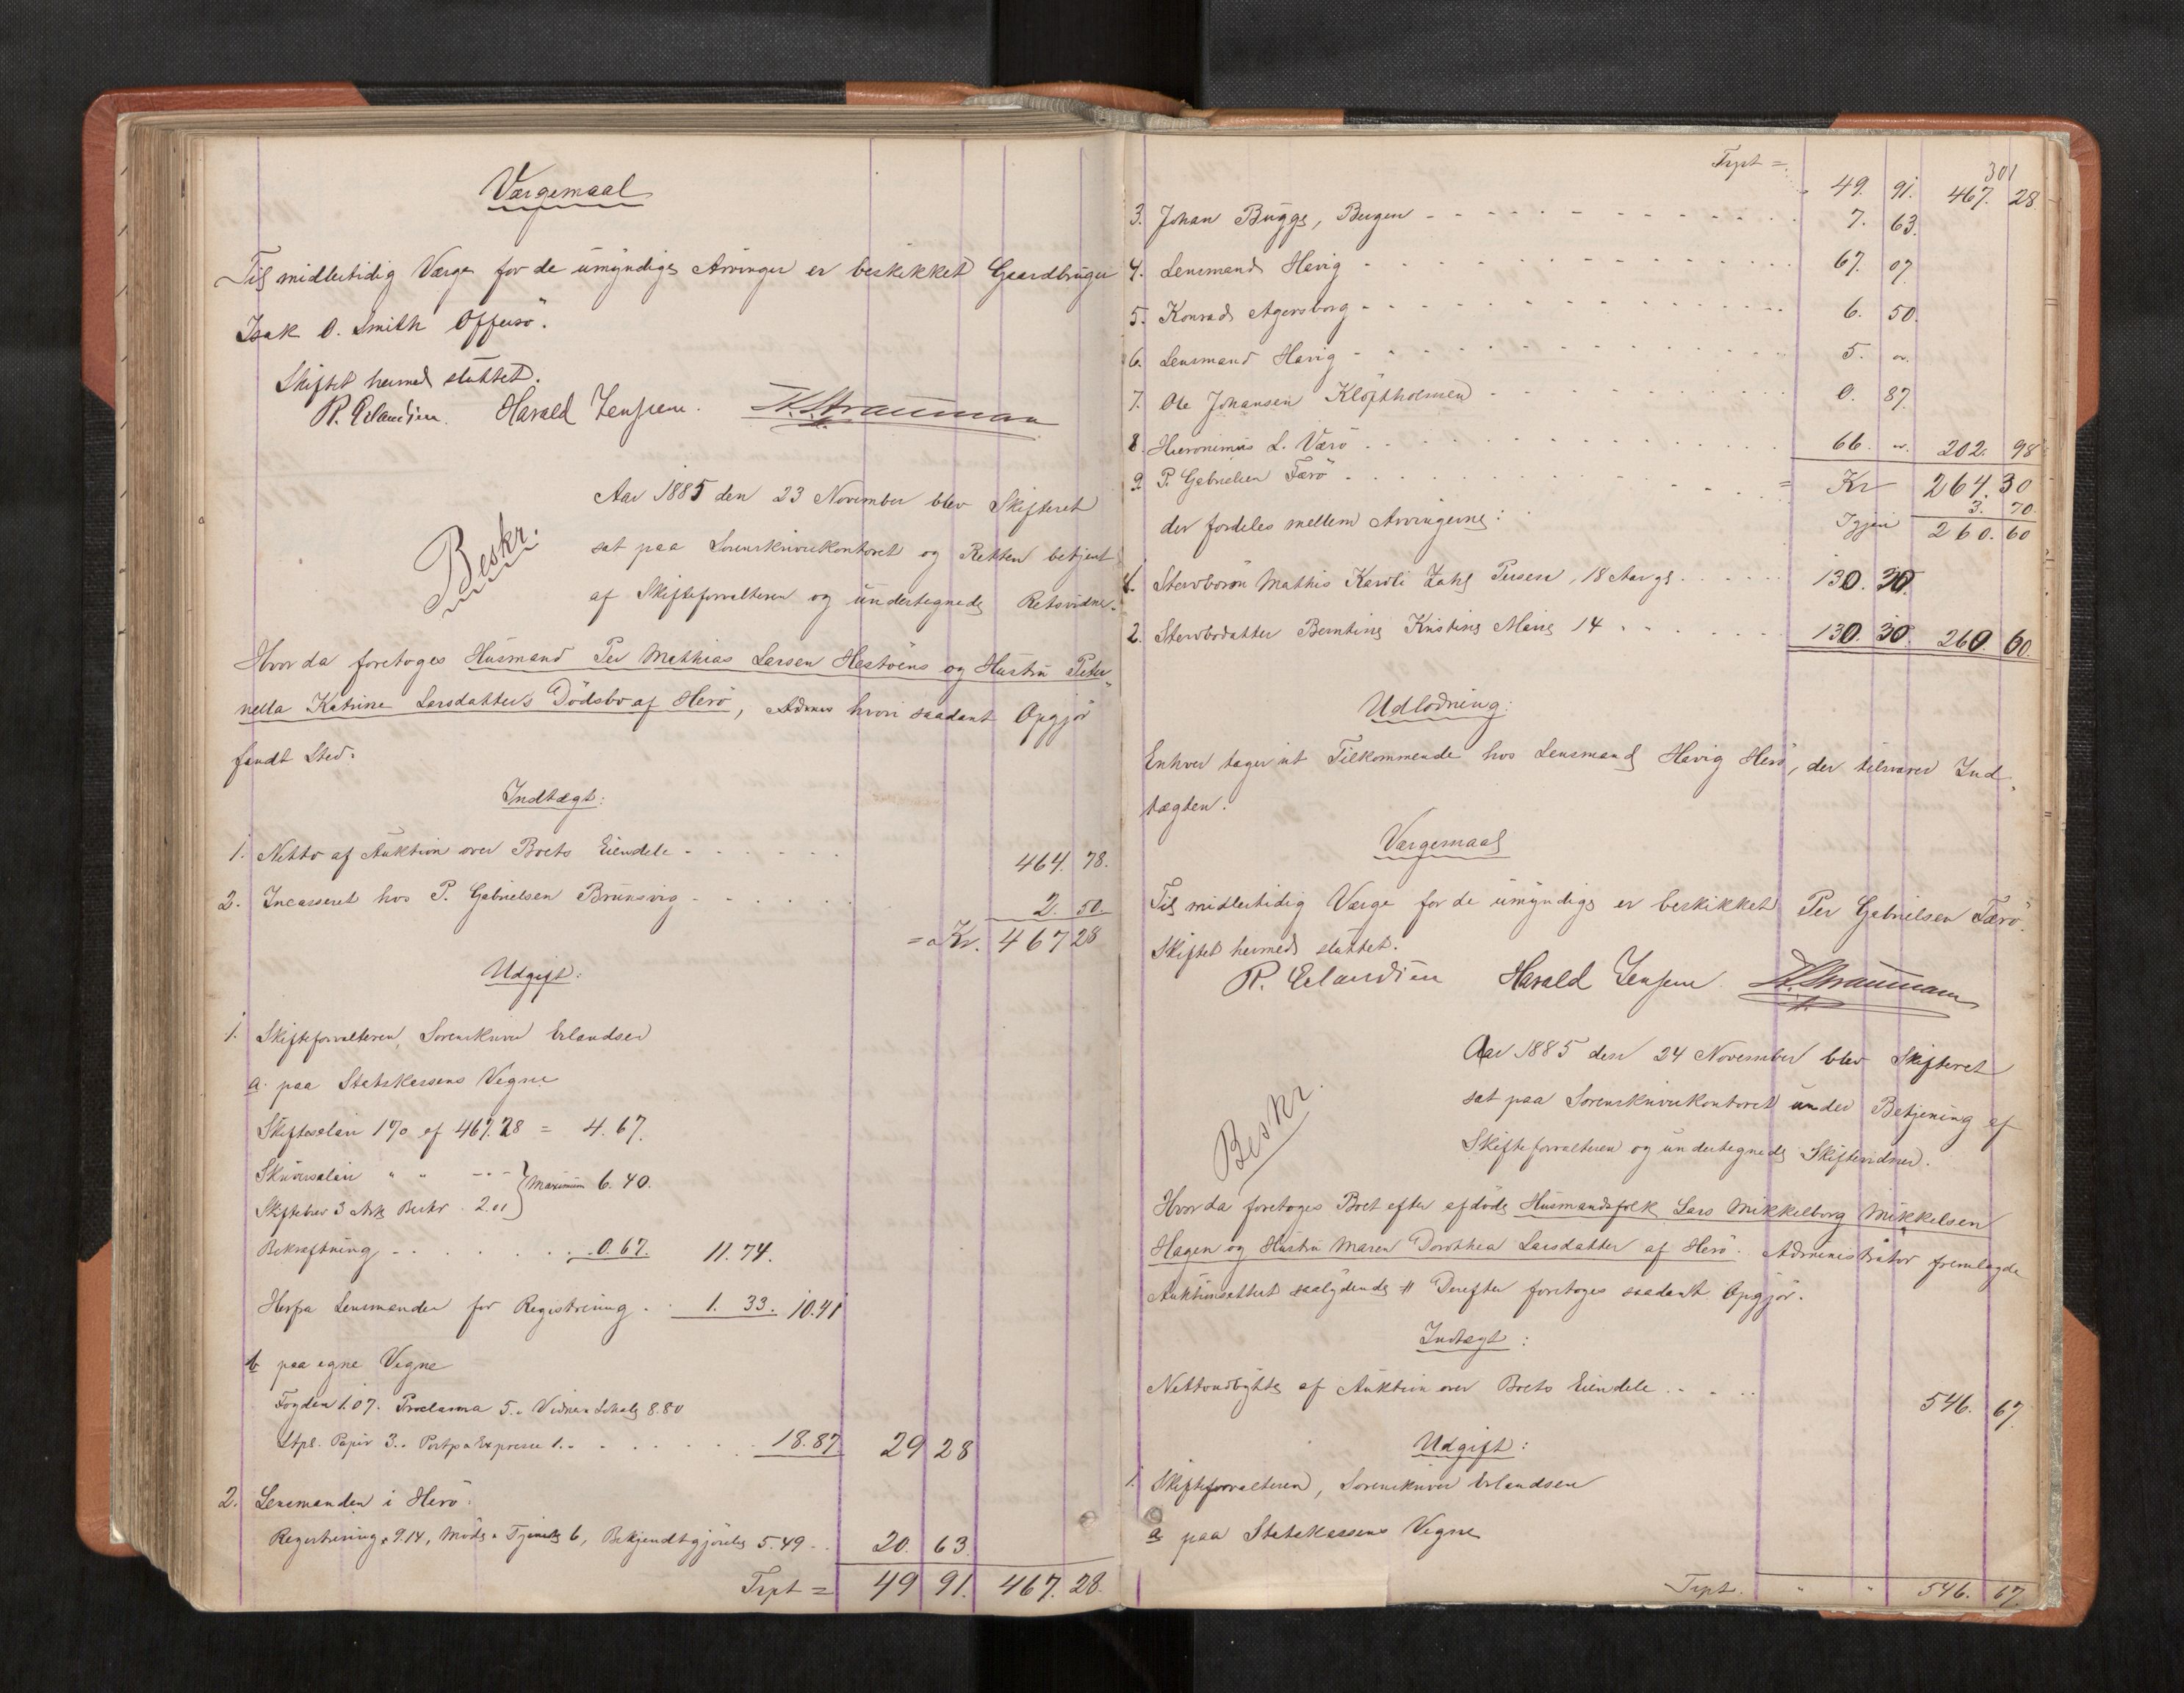 Værgemaal
Til midlertidig Værge for de umyndige Arvinger er beskikket Gaardbruger
Isak O. Smith Offersö.
Skiftet hermed sluttet.
R. Erlandsen. Harald Jensen.
Aar 1885 den 23 November blev Skifteret
sat paa Sorenskriverkontoret og Retten betjent
af Skifteforvalteren og undertegnede Retsvidner.
Beskr.
Hvor da foretoges Husmand Per Mathias Larsen Hestöens og Hustru Peter„
nella Katrine Larsdatters Dödsbo af Herö, hvori saadant Opgjör
fandt Sted.
Indtægt:
1. Netto af Auktion over Boets Eiendele - - - - - - 464. 78.
2. Incasseret hos P. Gabrielsen Brunsvig - - - - - - 2. 50.
= Kr. 467 28
Udgift:
1. Skifteforvalteren, Sorenskriver Erlandsen
a. paa Statskassens Vegne
Skiftesalær 1% af 467.28 = 4.67.
Skriversalær " " - - - } Maximum 6.40.
Skiftebrev 3 Ark Beskr. 2.01 }
Bekræftning - - . . . . . 0.67. 11.74.
Herfra Lensmanden for Registrering . . 1. 33. 10.41
b paa egne Vegne
Fogden 1.07. Proclama 5.. Vidner & Lokale 8.80
Stpl. Papir 3.. Porto & Expresse 1.. - . . . . . 18.87 29 28
2. Lensmanden i Herö:
Registrering 9.14, Möde & Tjeneste 6, Bekjendtgjörelse 5.49 . . 20. 63.
Trpt = 49 91. 467. 28.
301
Trpt = 49. 91. 467. 28
3. Johan Bugge, Bergen - - - - - - 7. 63.
4. Lensmand Havig - - - - - - 67. 07
5. Konrad Agersborg - - - - - - 6. 50.
6. Lensmand Havig - - - - - - 5. "
7. Ole Johansen Klöftholmen - - - - - - 0. 87.
8. Hieronimus L. Værö . . . . . . 66. " 202. 98
= Kr 264. 30
9 P. Gabrielsen Færö . . . . . . 3. 70.
der fordeles mellem Arvingerne: Igjen 260. 60
1. Stervbosön Mathis Karoli Zahl Persen, 18 Aar gl. . . . . 130. 30.
2. Stervbodatter Berntine Kristine Marie 14 . . . . . . 130. 30. 260. 60.
Udlodning:
Enhver tager sit Tilkommende hos Lensmand Havig Herö, der tilsvarer Ind„
tægten.
Værgemaal
Til midlertidig Værge for de umyndige er beskikket Per Gabrielsen Færö.
Skiftet hermed sluttet.
R. Erlandsen Harald Jensen
Aar 1885 den 24 November blev Skifteret
sat paa Sorenskriverkontoret under Betjening af
Skifteforvalteren og undertegnede Skiftevidner.
Beskr.
Hvor da foretoges Boet efter afdöde Husmandsfolk Lars Mikkelborg Mikkelsen
Hagen og Hustru Maren Dorothea Larsdatter af Herö. Administrator fremlagde
Auktionsattest saalydende # Derefter foretoges saadant Opgjör.
Indtægt:
Nettoudbytte af Auktion over Boets Eiendele . . . . 546. 67.
Udgift:
1. Skifteforvalteren, Sorenskriver Erlandsen
a paa Statskassens Vegne
Trpt. " " 546. 67.